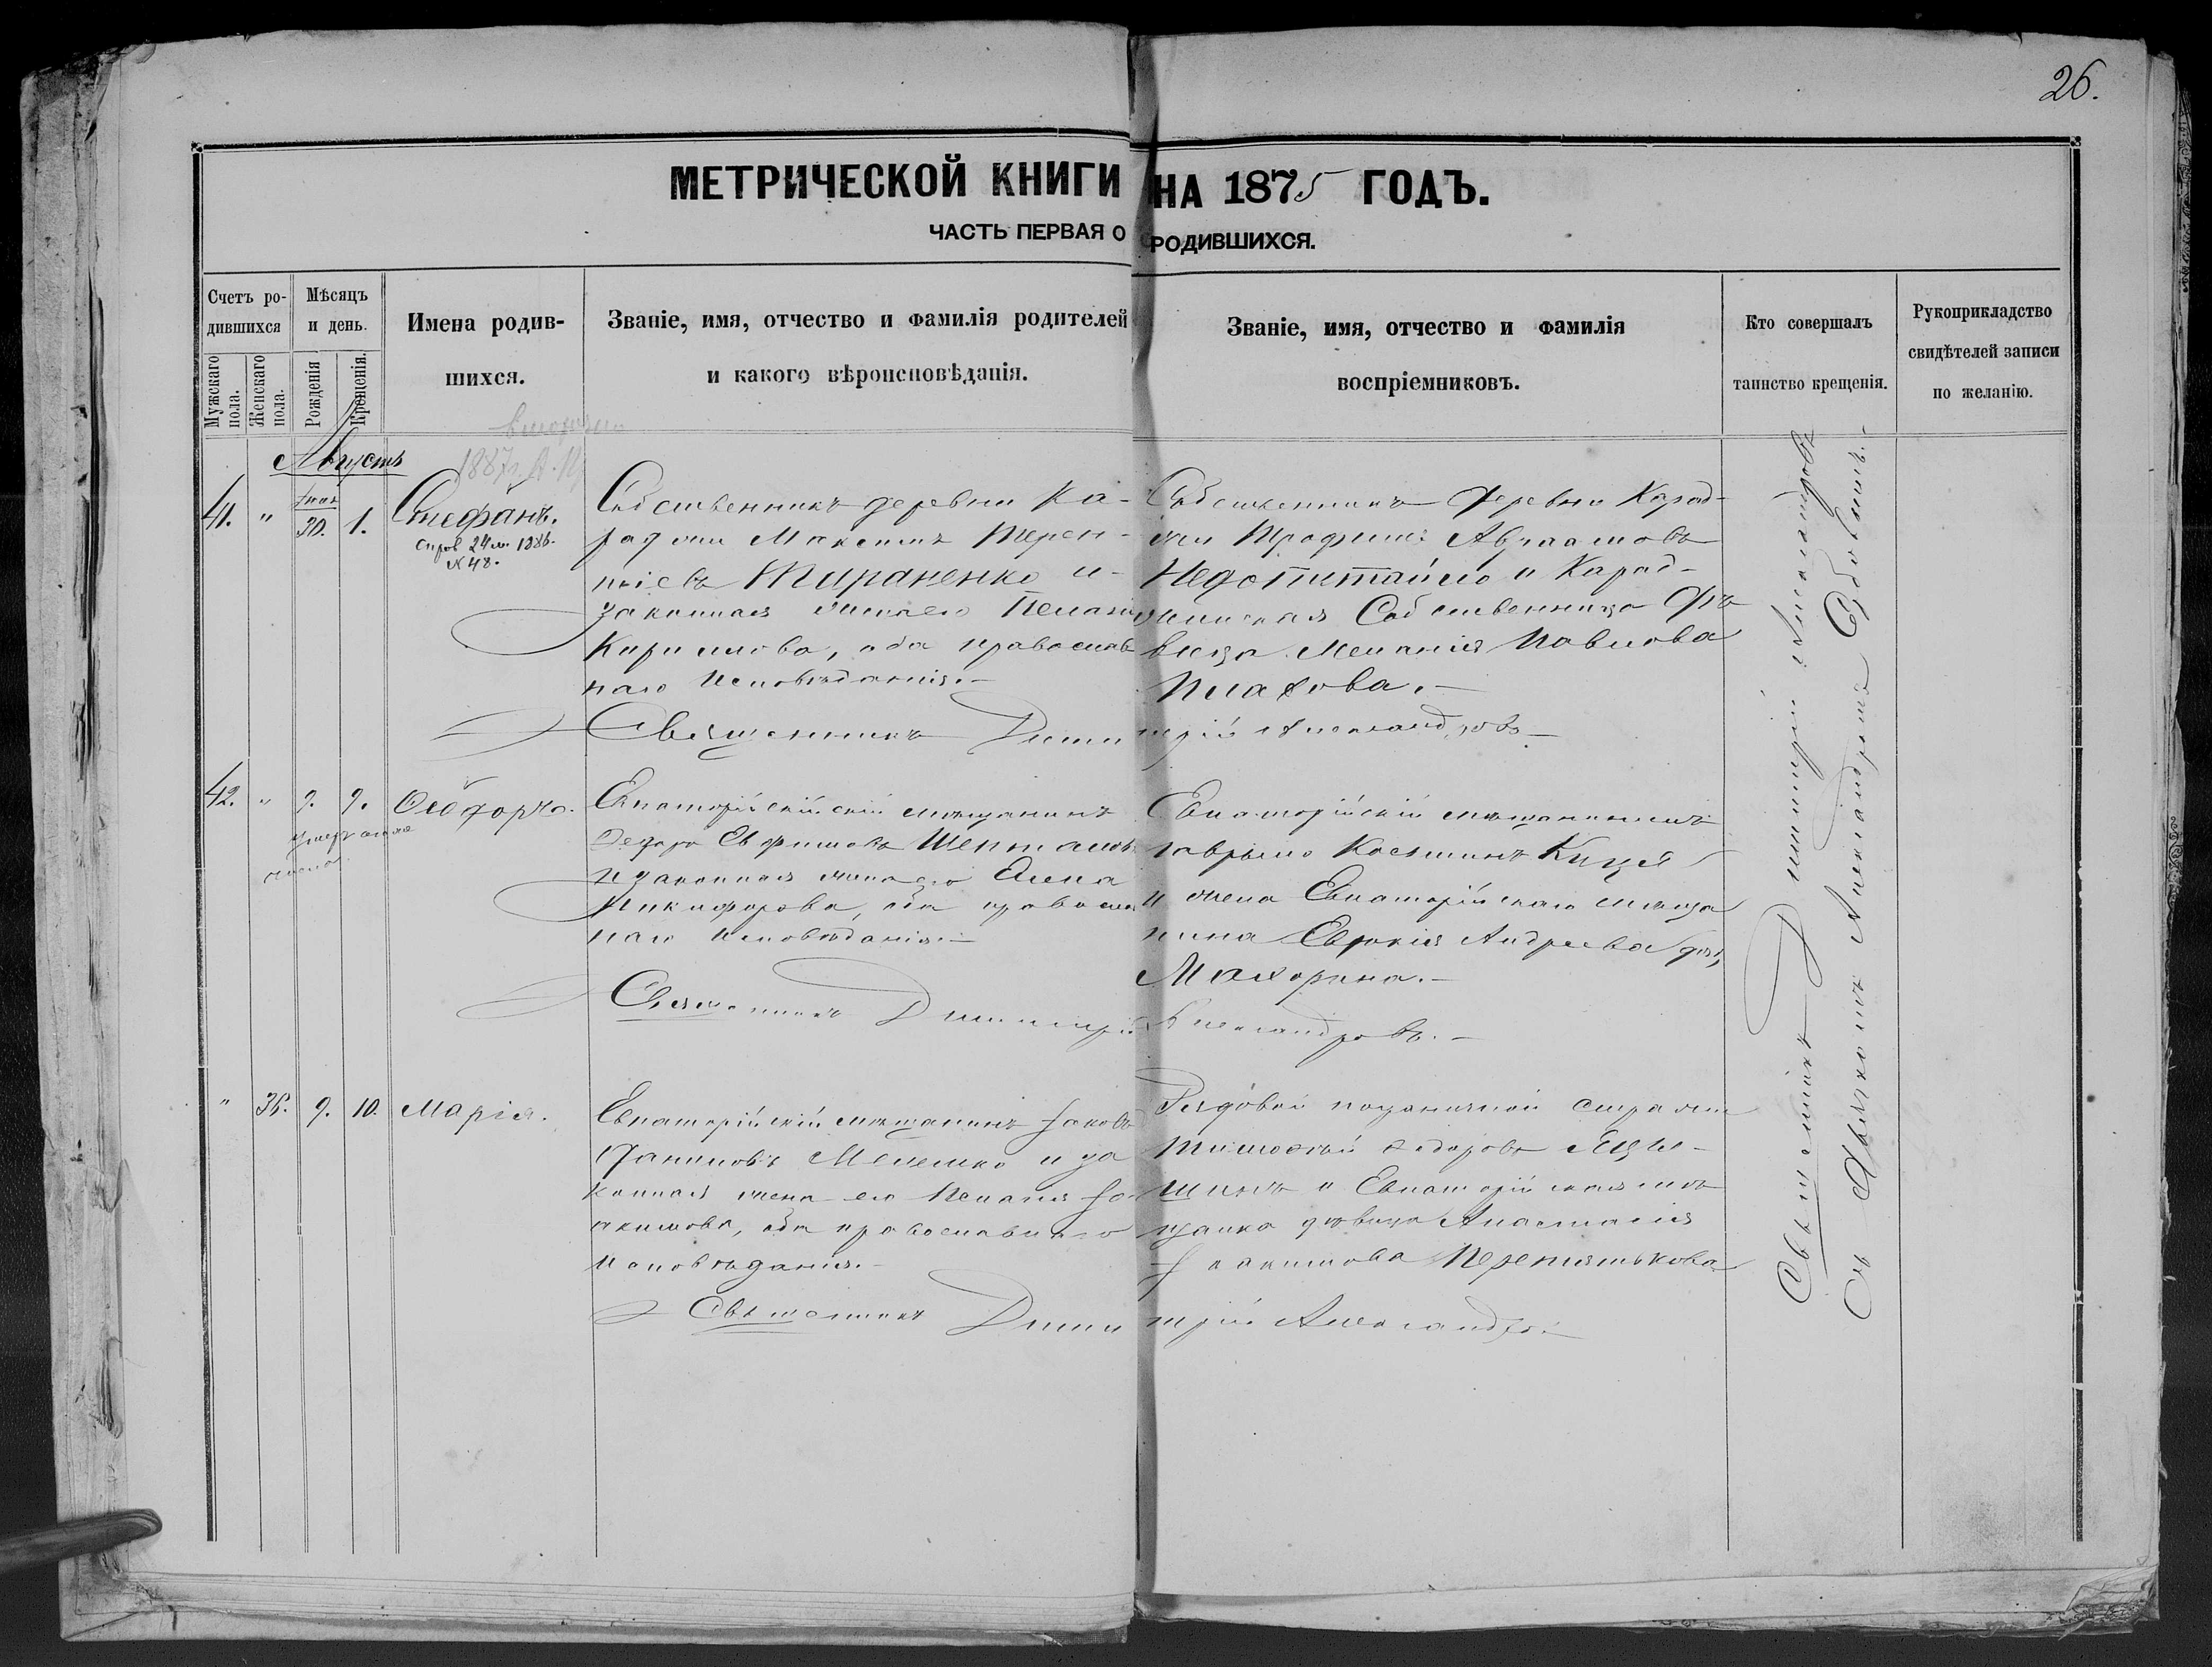 26.
МЕТРИЧЕСКОЙ КНИГИ НА 1875 ГОДЪ.
ЧАСТЬ ПЕРВАЯ О РОДИВШИХСЯ.
Счетъ ро-
дившихся
Мужскаго пола.
Женскаго пола.
Мѣсяцъ
и день.
Рожденія
Крещенія.
Имена родив-
шихся.
Званіе, имя, отчество и фамилія родителей
и какого вѣроисповѣданія.
Званіе, имя, отчество и фамилія
воспріемниковъ.
Кто совершалъ
таинство крещенія.
Рукоприкладство
свидѣтелей записи
по желанію.
Августъ
1887 г.
41. " 30. 1. Стефанъ.
1886.
N 48.
Собственникъ деревни Ка-
радчи Максимъ Терен-
тіевъ Тираненко и
законная жена его Пелагія
Кирилова, оба православ
наго исповѣданія.—
Собственникъ деревни Карад-
жи Трофимъ Авраамовъ
Недопитайло и Карад-
жинская Собственница дѣ
вица Меланія Павлова
Платова.—
Священникъ Димитрій Александровъ—
42. " 9. 9. Ѳеодоръ.
умеръ
Евпаторійскій мѣщанинъ
Ефимовъ
и законная жена его Елена
Никифорова, оба православ
наго исповѣданія.—
Евпаторійскій мѣщанинъ
Гаврыло Косминъ Куцей
и жена Евпаторійскаго мѣща
нина Евфимія Андреева
Махорина.—
Священникъ Димитрій Александровъ.—
" 9. 10. Марія.
Евпаторійскій мѣщанинъ Іаковъ
Даниловъ Мелешко и за
конная жена его Пелагія Іо-
акимова, оба православнаго
исповѣданія.—
Рядовой пограничной стражи
Тимофей Ѳедоровъ
и Евпаторійская мѣ
щанка дѣвица Анастасія
Іоакимова Перетятькова
Священникъ Димитрій Александровъ
Священникъ Димитрій Александровъ
съ Дьякономъ Александромъ